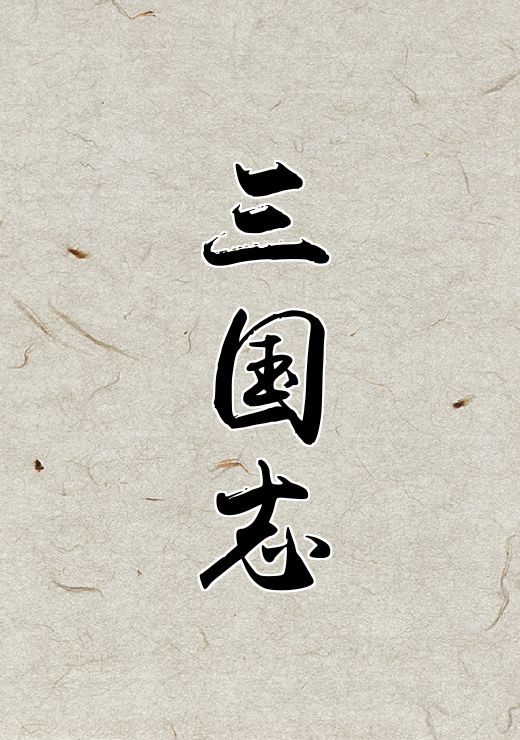 三国志